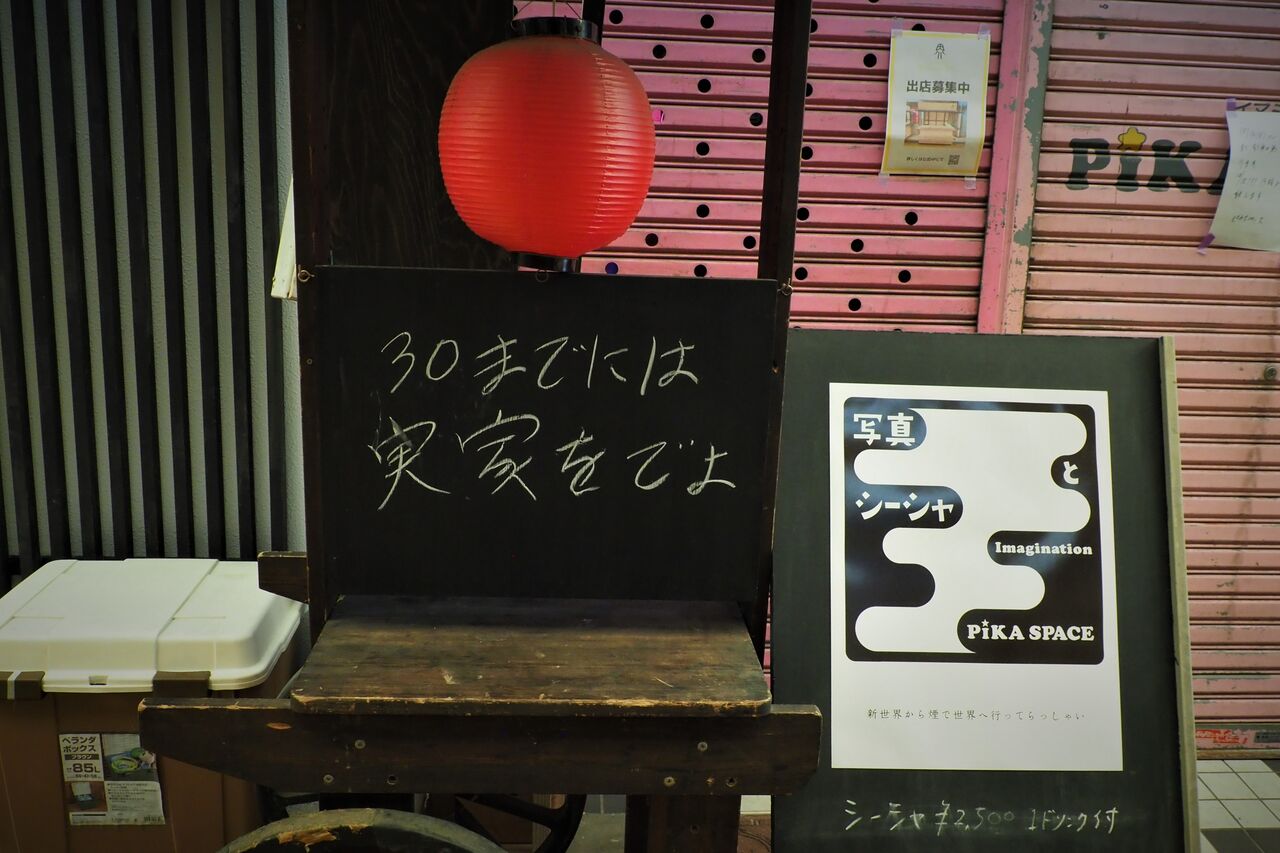 出店募集中
詳しくは公式HPにて
PiKA
30までには
実家をでよ
写真
と
シーシャ
Imagination
PiKA SPACE
新世界から煙で世界へ行ってらっしゃい
シーシャ ¥2,500 1ドリンク付
ベランダ
ボックス
ブラウン
85L